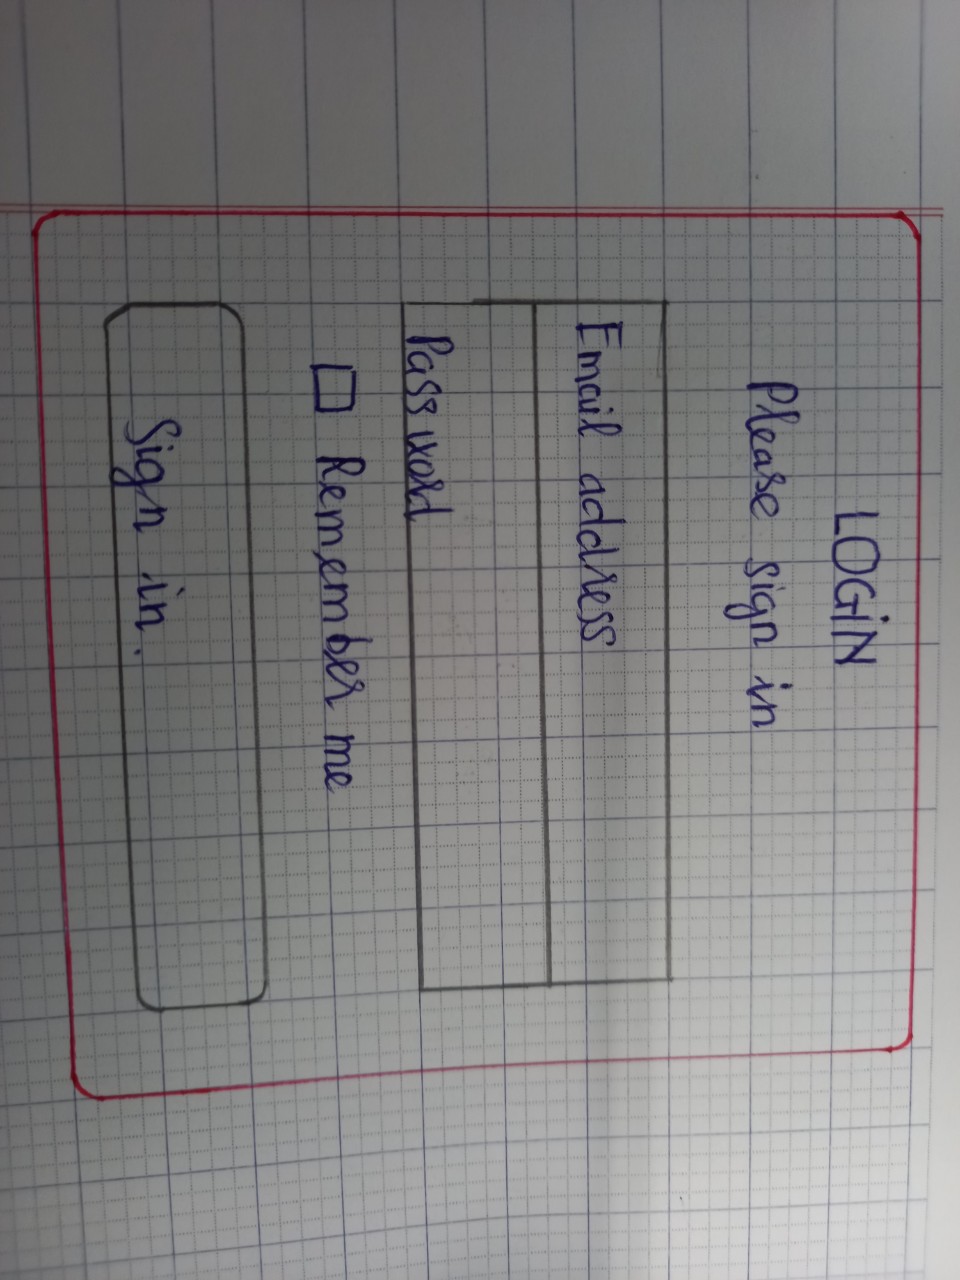 LOGIN
Please sign in
Email address
Password
Remember me
Sign in.